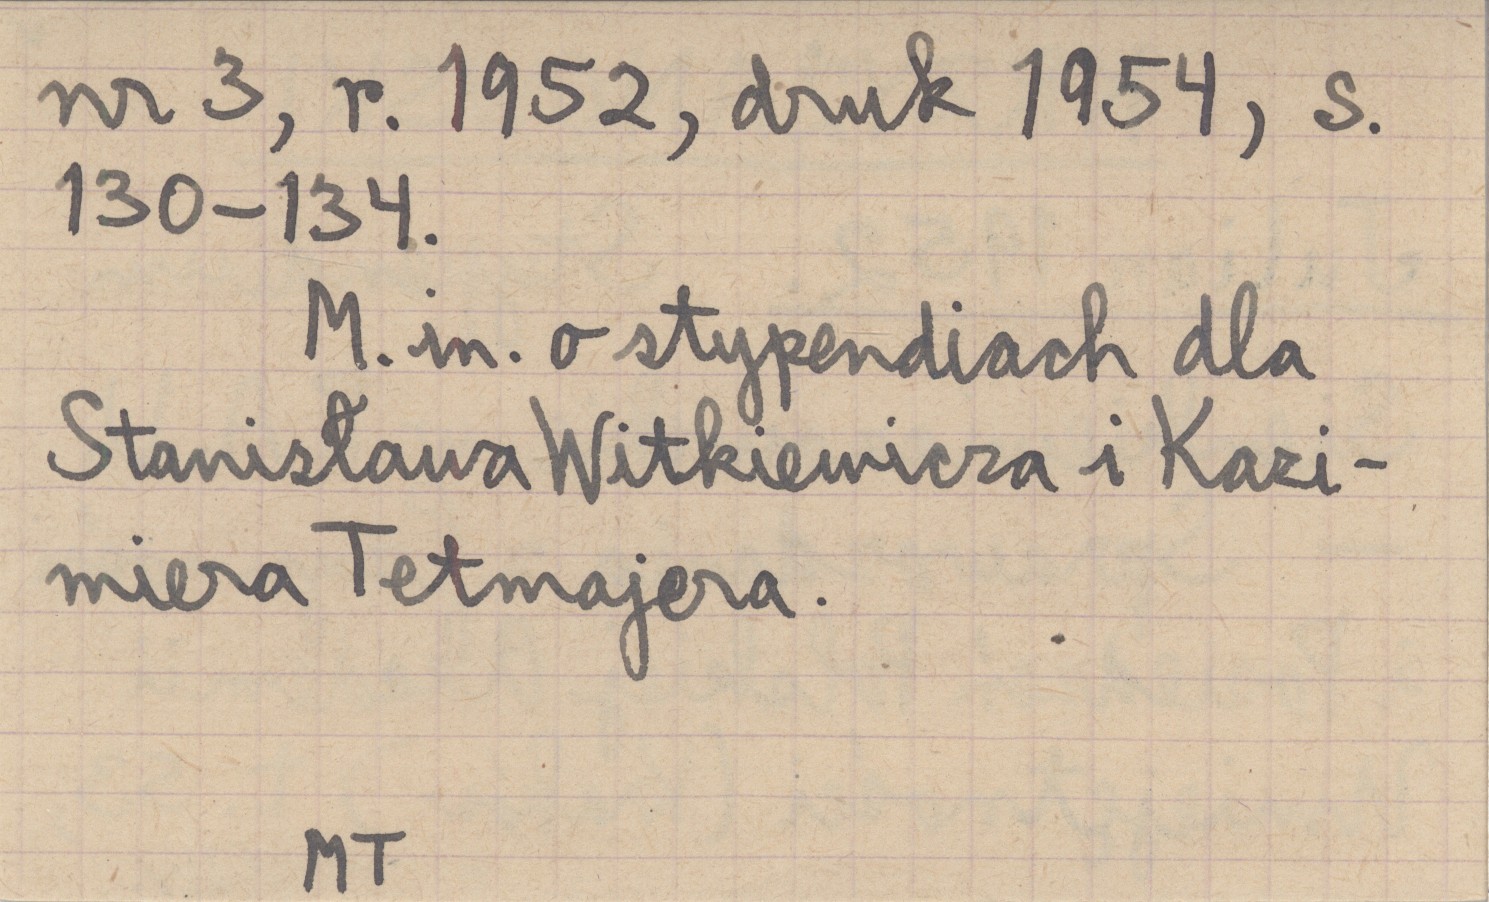 nr 3, r. 1952, druk 1954, s.
130-134.
M. in. o stypendiach dla
Stanisława Witkiewicza i Kazi-
miera Tetmajera.
MT